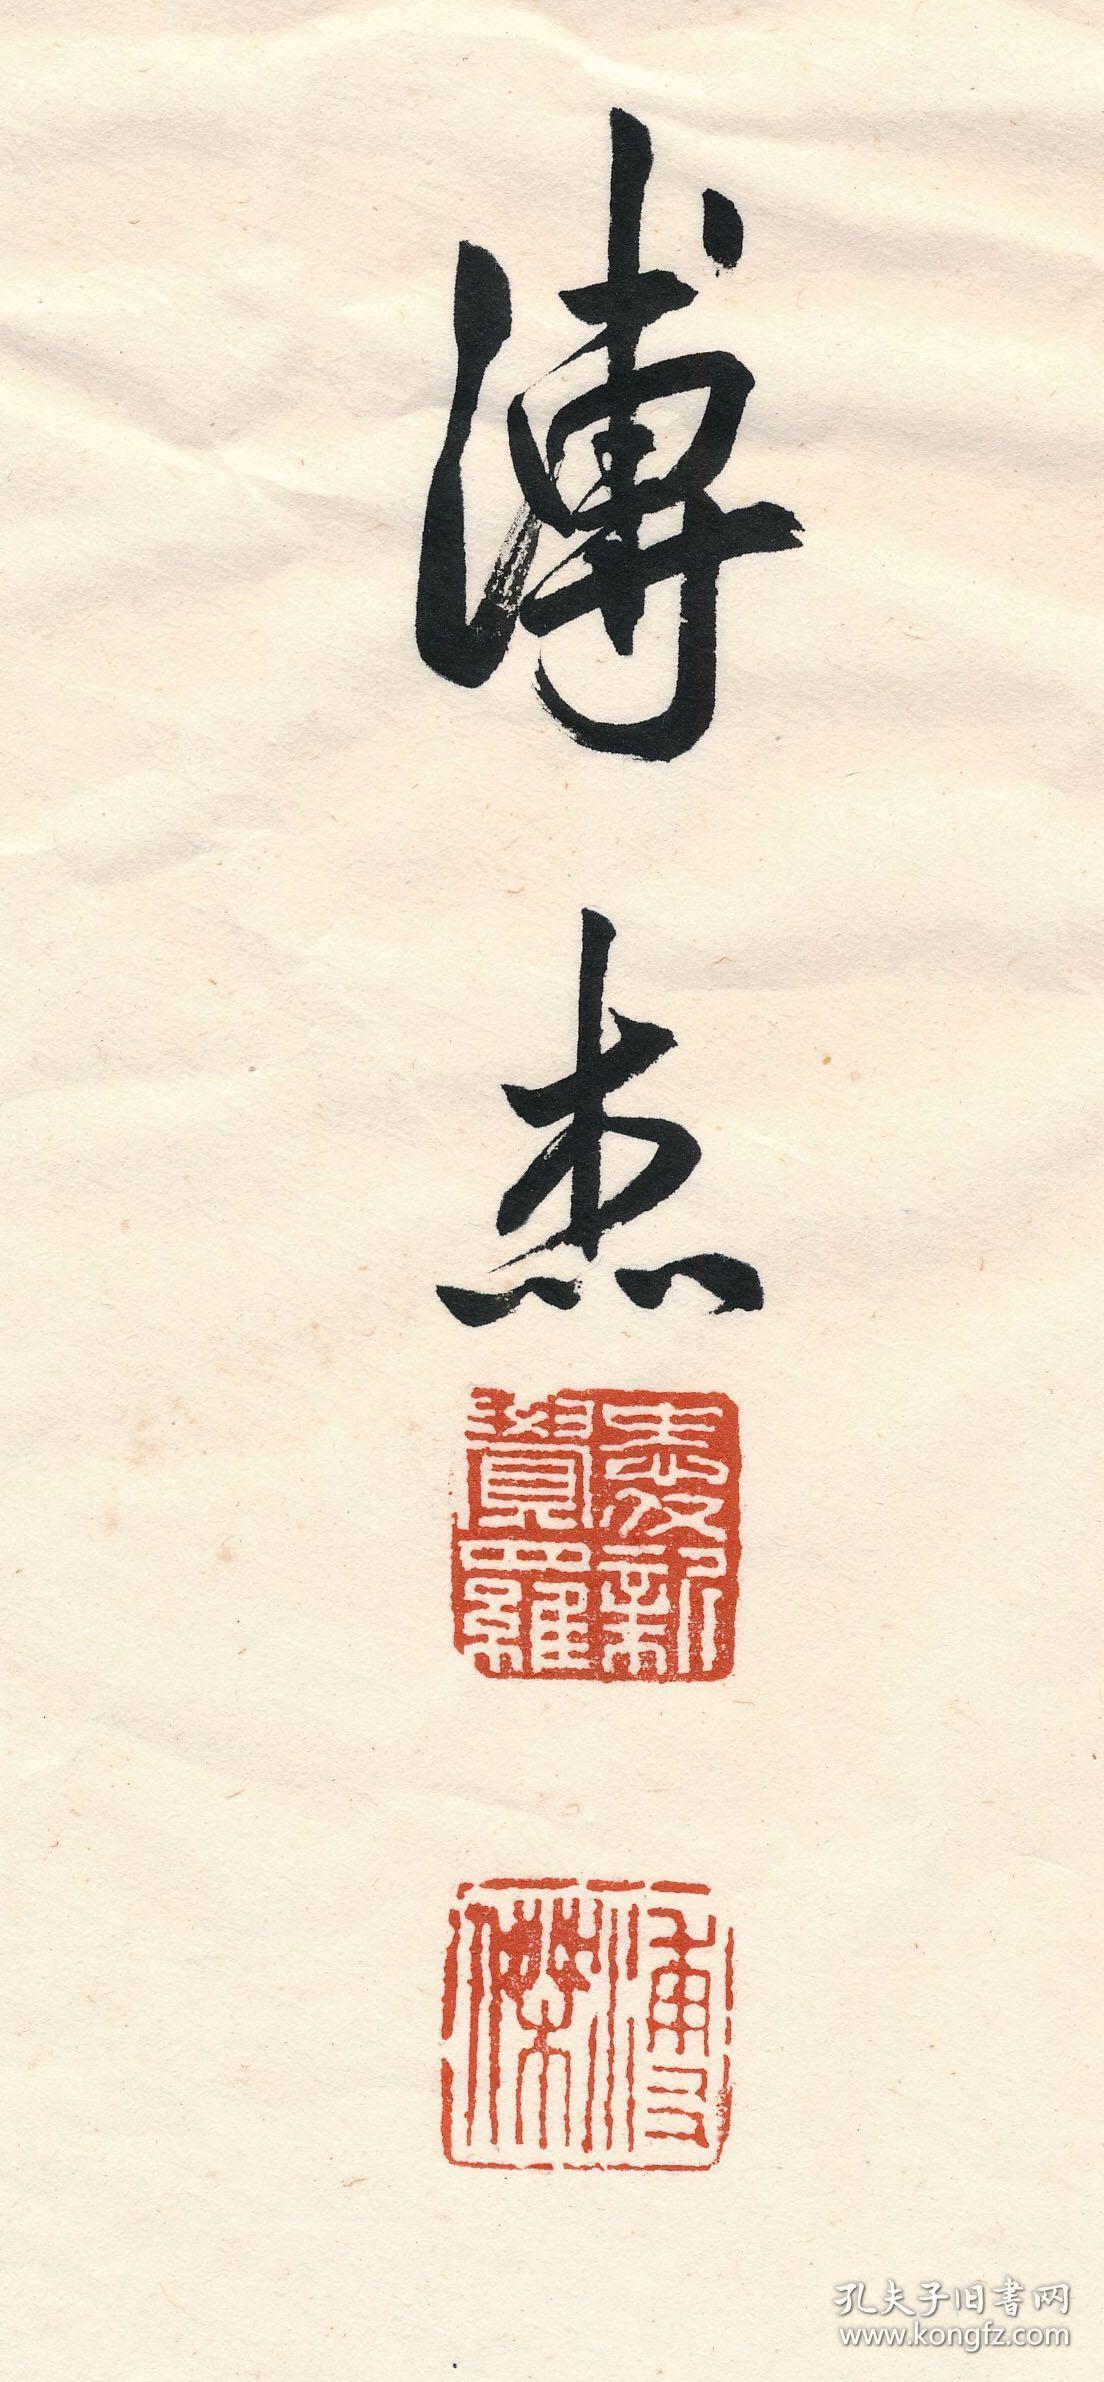 溥杰
愛新
覺羅
溥
傑
孔夫子旧书网
www.kongfz.com